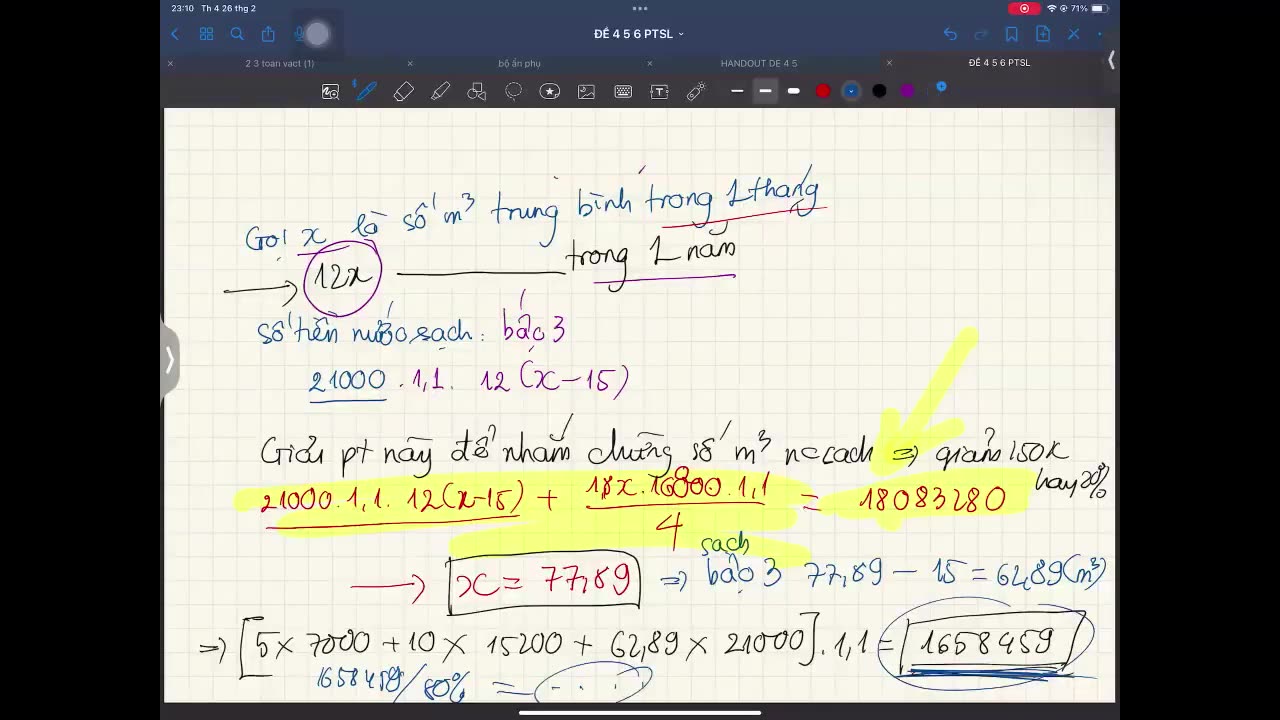 23:10 Th 4 26 thg 2
71%
ĐỀ 4 5 6 PTSL
2 3 toan vact (1) bộ ẩn phụ HANDOUT DE 4 5 ĐỀ 4 5 6 PTSL
Gọi x là số m³ trung bình trong 1 tháng
→ 12x ——— trong 1 năm
số tiền nước sạch: bậc 3
21000 . 1,1. 12 (x-15)
Giải pt này để nhắm chừng số m³ nc sạch => giảm 150k
hay 20%
21000.1,1. 12(x-15) + 12x.16800.1,1 / 4 = 18083280
→ x = 77,89 => sạch bậc 3 77,89 - 15 = 62,89 (m³)
=> [5 x 7000 + 10 x 15200 + 62,89 x 21000] . 1,1 = 1658459
1658459/80% = ....